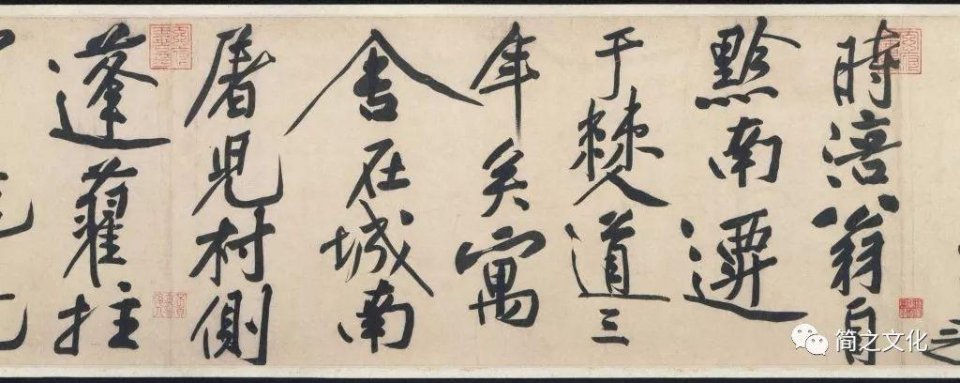 時涪翁自
黔南遷
于僰道三
年矣寓
舍在城南
屠兒村側
蓬藋拄
简之文化